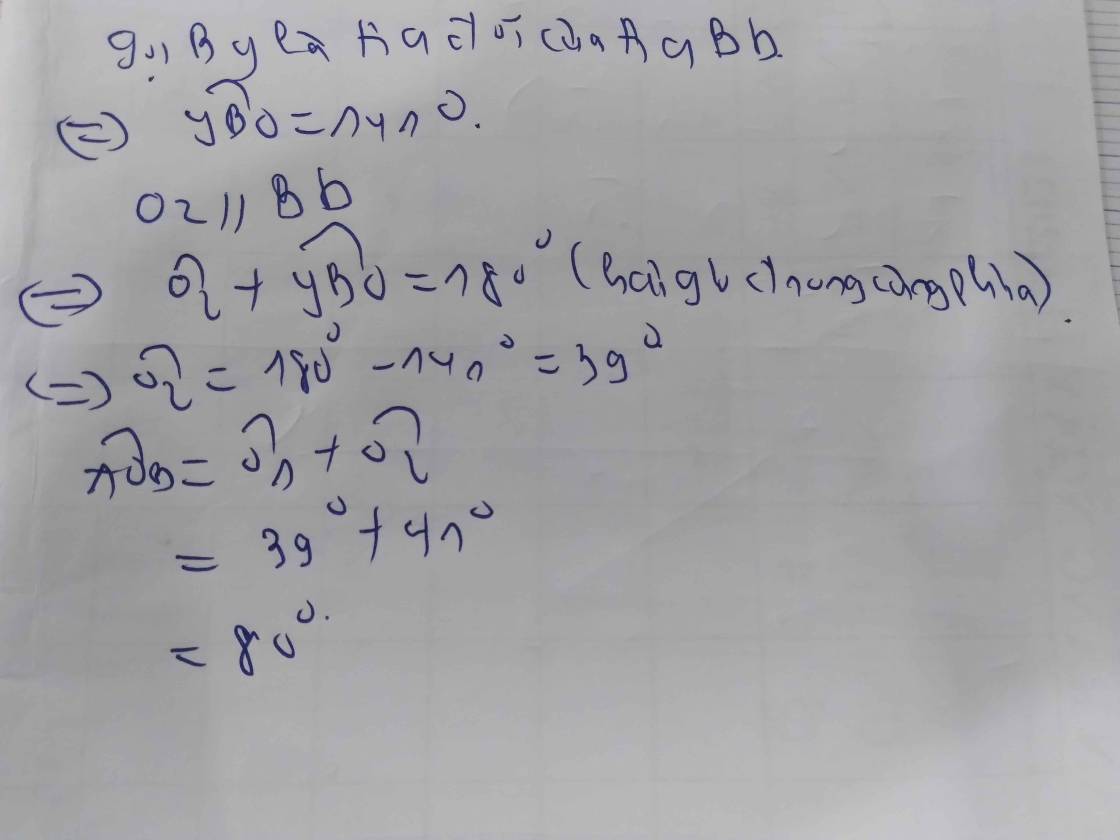 gọi By là tia đối của tia Bb.
(=) yB̂O = 141°.
Oz // Bb
(=) Ô₂ + yB̂O = 180° (hai góc trong cùng phía).
(=) Ô₂ = 180° - 141° = 39°
AÔB = Ô₁ + Ô₂
= 39° + 41°
= 80°.